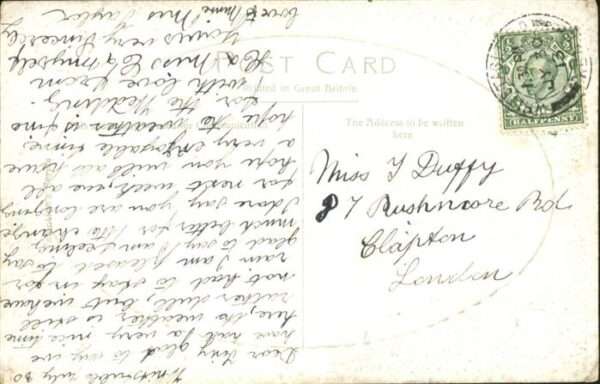 POST CARD
Printed in Great Britain
The Address to be written
here
HALFPENNY
Miss I Duffy
87 Rushmore Rd
Clapton
London
July 30
Dear Ivy glad to say we
have had a very nice time
here, the weather is still
rather dull, but we have
not had to stay in for
rain I am pleased to say
glad to say I am feeling
much better for the change
I dare say you are longing
for next week, we all
hope you will all have
a very enjoyable time,
hope the weather is fine
for the Wedding.
with love from
Miss myself
yours very Sincerely
love to Mrs Taylor